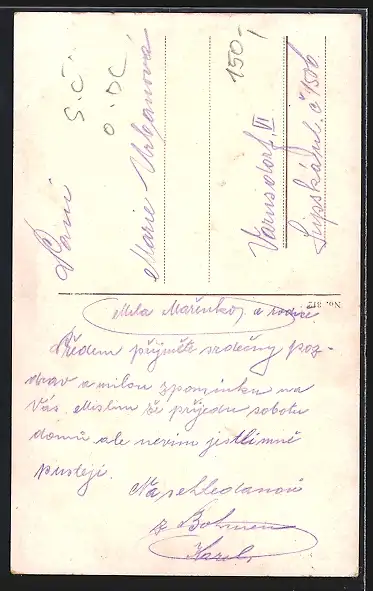 Paní
Marie Urbanová
Varnsdorf VI
Lipská ul. č 1506
150,-
No. 312
Milá Mařenko, a rodiče
Předem přijměte srdečný poz-
drav a milou zpomínku na
Vás. Mislím že přijedu sobotu
domů ale nevím jestli mně
pustějí.
Na sehledanou
z Bohmen
Karel